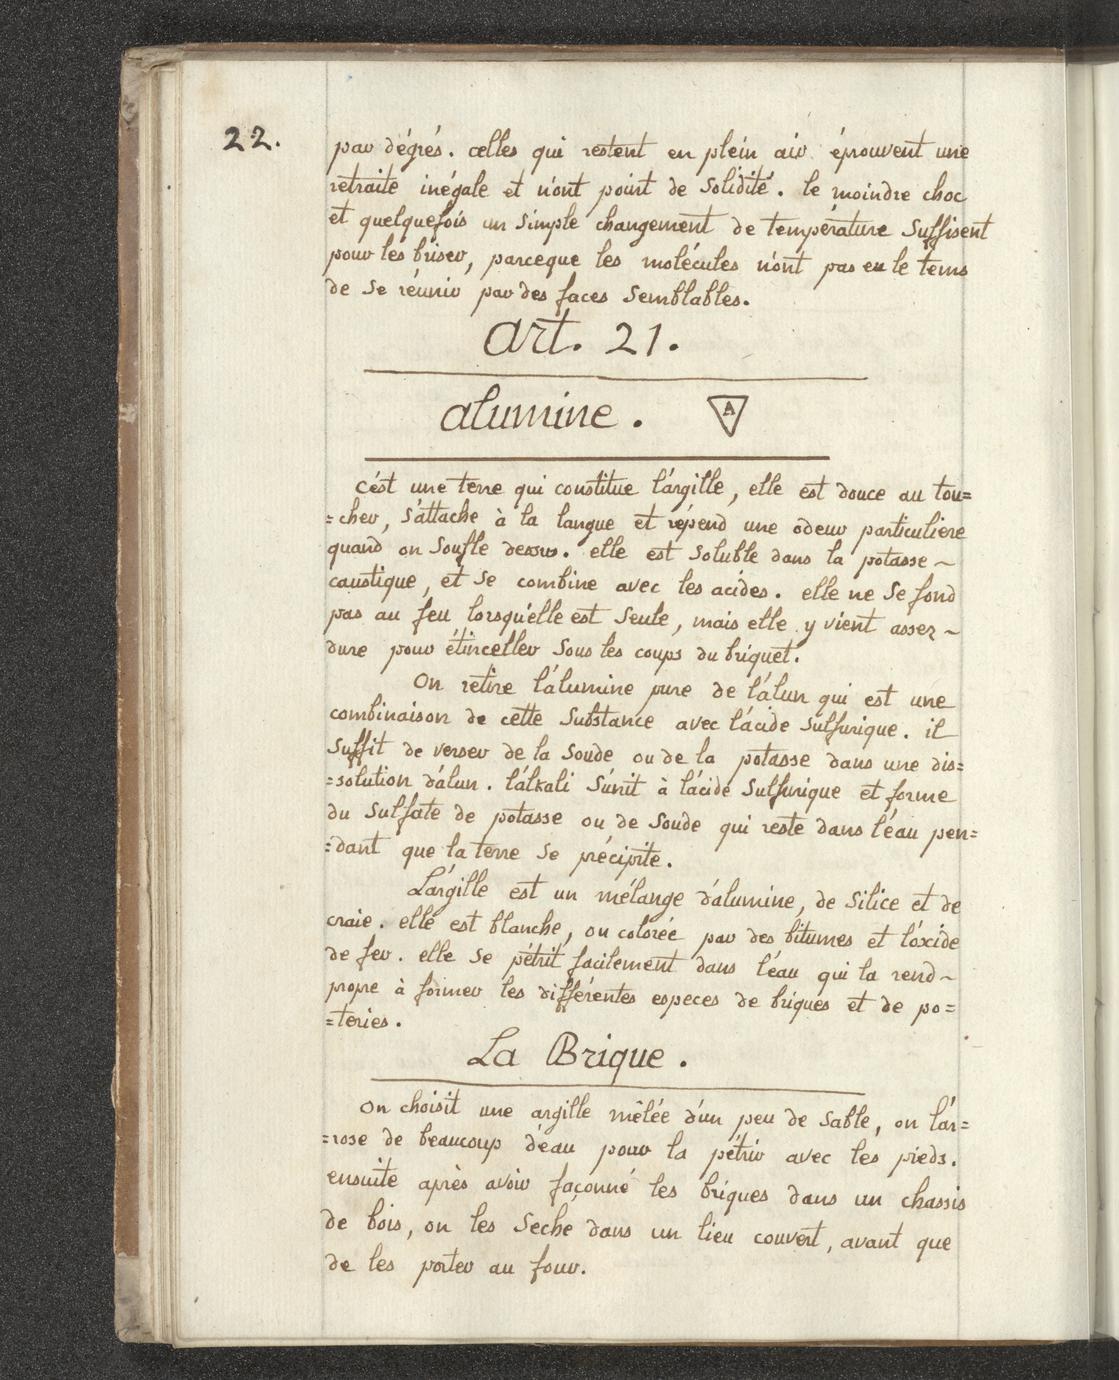 22.
par dégrés. celles qui restent en plein air éprouvent une
retraite inégale et n'ont point de Solidité. le moindre choc
et quelquefois un Simple changement de température Suffisent
pour les briser, parceque les molécules n'ont pas eu le tems
de Se réunir par des faces Semblables.
art. 21.
alumine. A
C'est une terre qui constitue l'argille, elle est douce au tou=
=cher, S'attache à la langue et répend une odeur particuliere
quand on Soufle dessus. elle est Soluble dans la potasse ~
caustique, et Se combine avec les acides. elle ne Se fond
pas au feu lorsqu'elle est Seule, mais elle y vient assez ~
dure pour étinceller Sous les coups du briquet.
On retire l'alumine pure de l'alun qui est une
combinaison de cette Substance avec l'acide Sulfurique. il
Suffit de verser de la Soude ou de la potasse dans une dis=
=solution d'alun. l'alkali S'unit à l'acide Sulfurique et forme
du Sulfate de potasse ou de Soude qui reste dans l'eau pen=
=dant que la terre Se précipite.
L'argille est un mélange d'alumine, de Silice et de
craie. elle est blanche, ou colorée par des bitumes et l'oxide
de fer. elle Se pétrit facilement dans l'eau qui la rend ~
propre à former les différentes especes de briques et de po=
=teries.
La Brique.
On choisit une argille mêlée d'un peu de Sable, on l'ar=
=rose de beaucoup d'eau pour la pétrir avec les pieds.
ensuite après avoir façonné les briques dans un chassis
de bois, on les Seche dans un lieu couvert, avant que
de les porter au four.